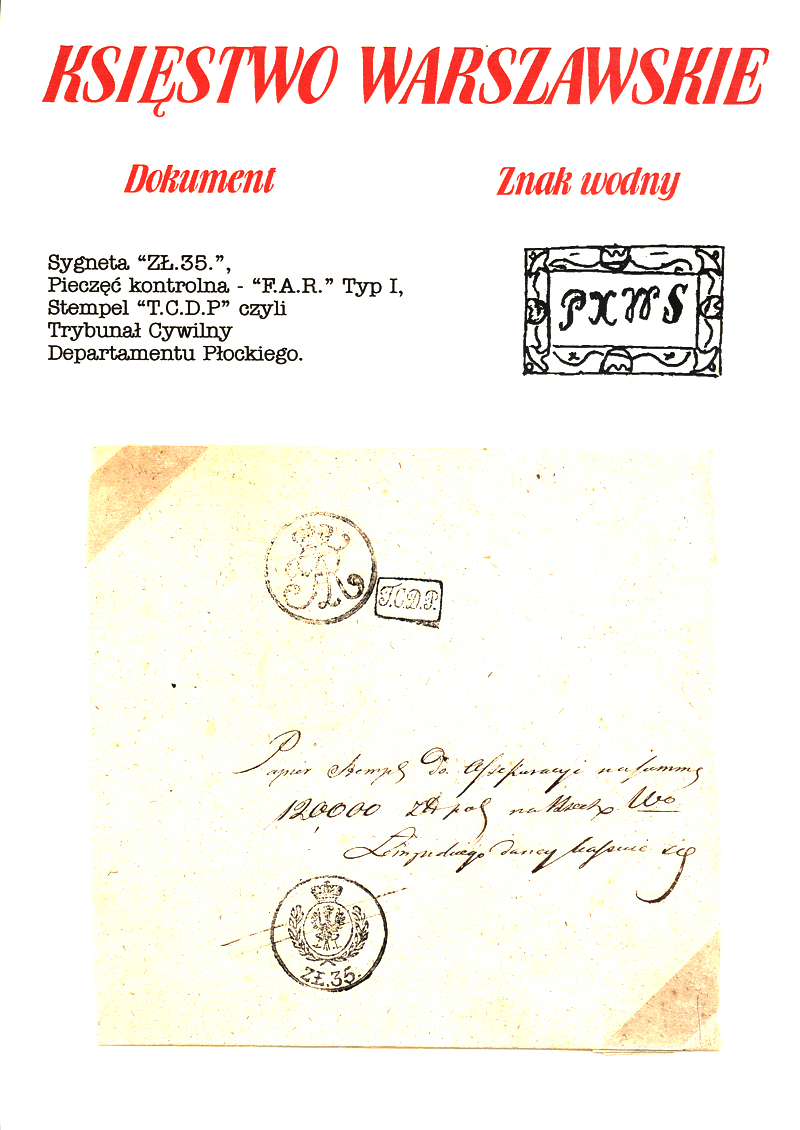 KSIĘSTWO WARSZAWSKIE
Dokument
Znak wodny
Sygneta “ZŁ.35.”,
Pieczęć kontrolna - “F.A.R.” Typ I,
Stempel “T.C.D.P” czyli
Trybunał Cywilny
Departamentu Płockiego.
PXWS
T.C.D.P.
Papier Stempl do Assekuracyi na summę
120000 pol na Wo
dancy się
ZŁ.35.